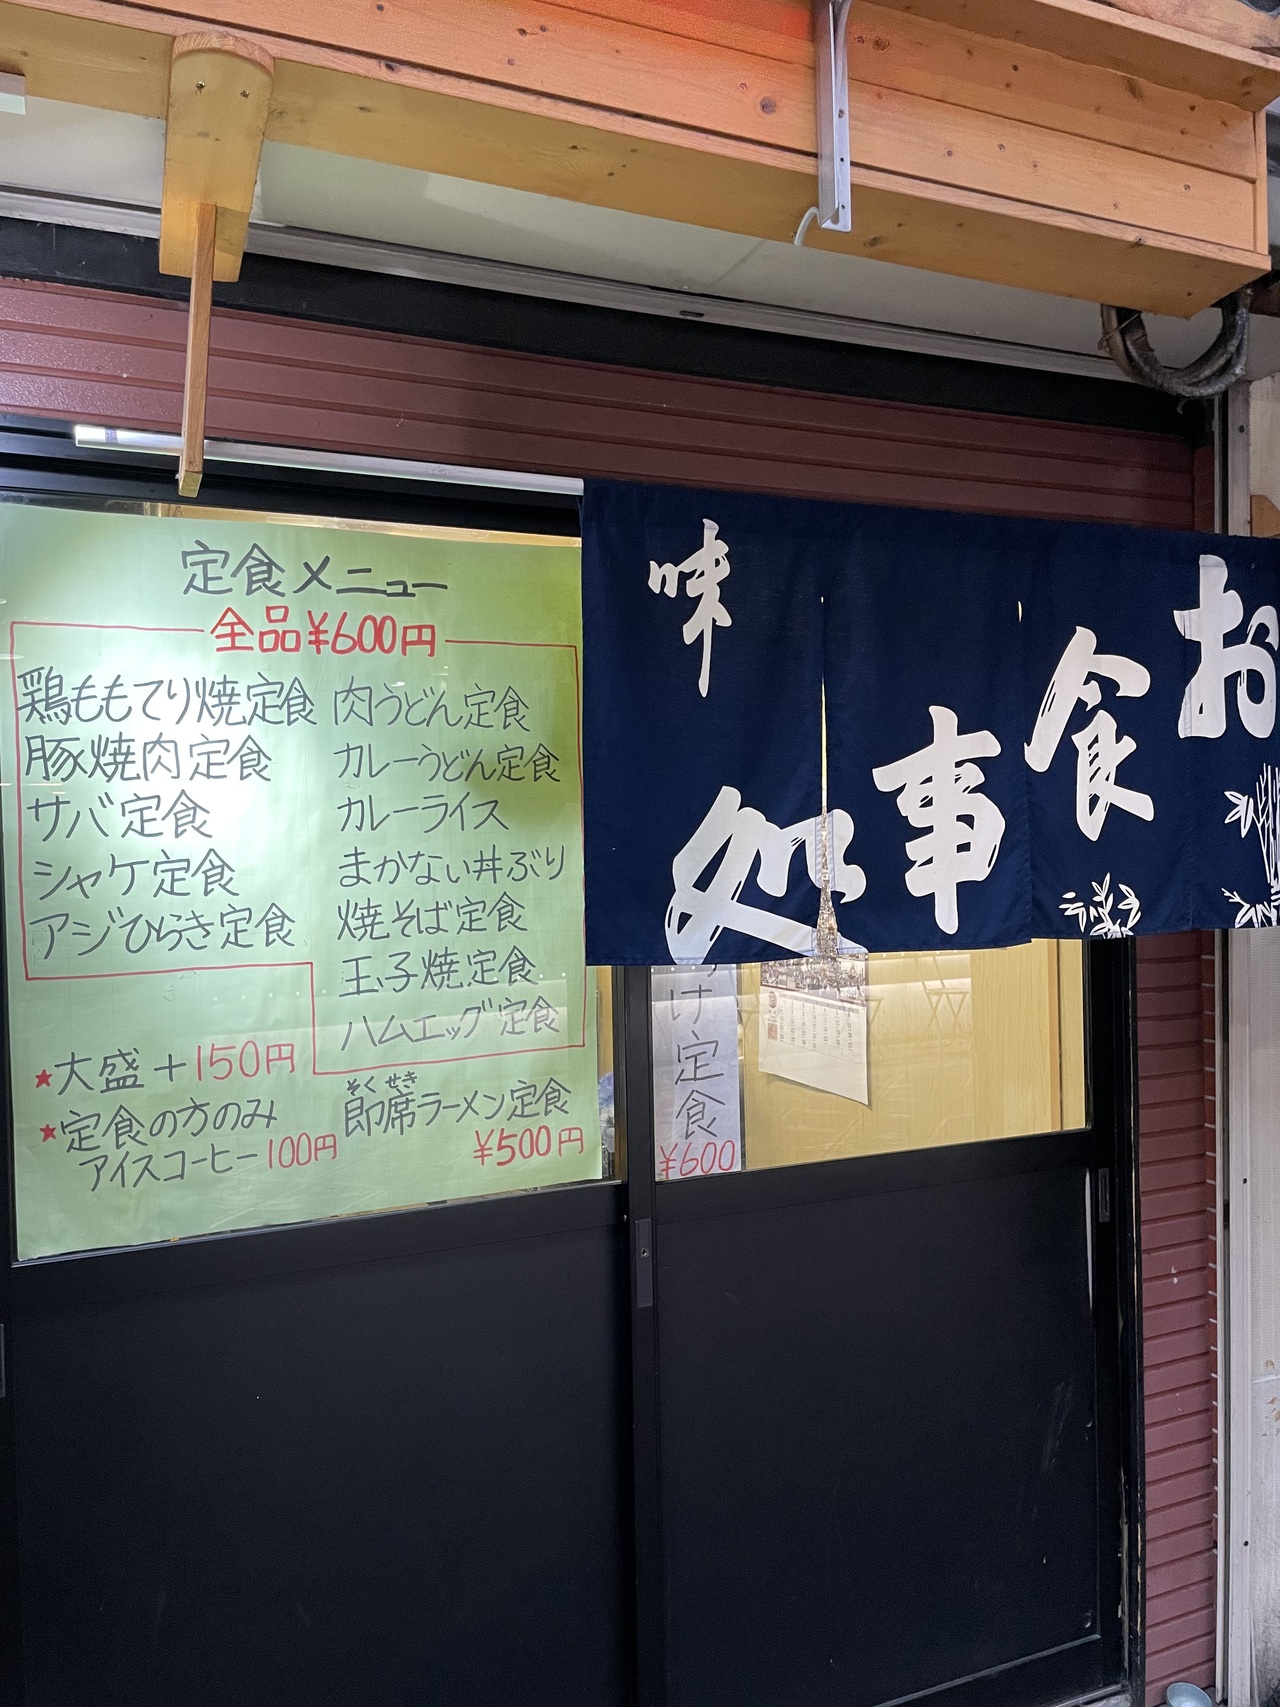 定食メニュー
全品¥600円
鶏ももてり焼定食
豚焼肉定食
サバ定食
シャケ定食
アジひらき定食
肉うどん定食
カレーうどん定食
カレーライス
まかない丼ぶり
焼そば定食
玉子焼定食
ハムエッグ定食
★大盛+150円
★定食の方のみ
アイスコーヒー100円
そくせき
即席ラーメン定食
¥500円
お食事処
味
け定食
¥600